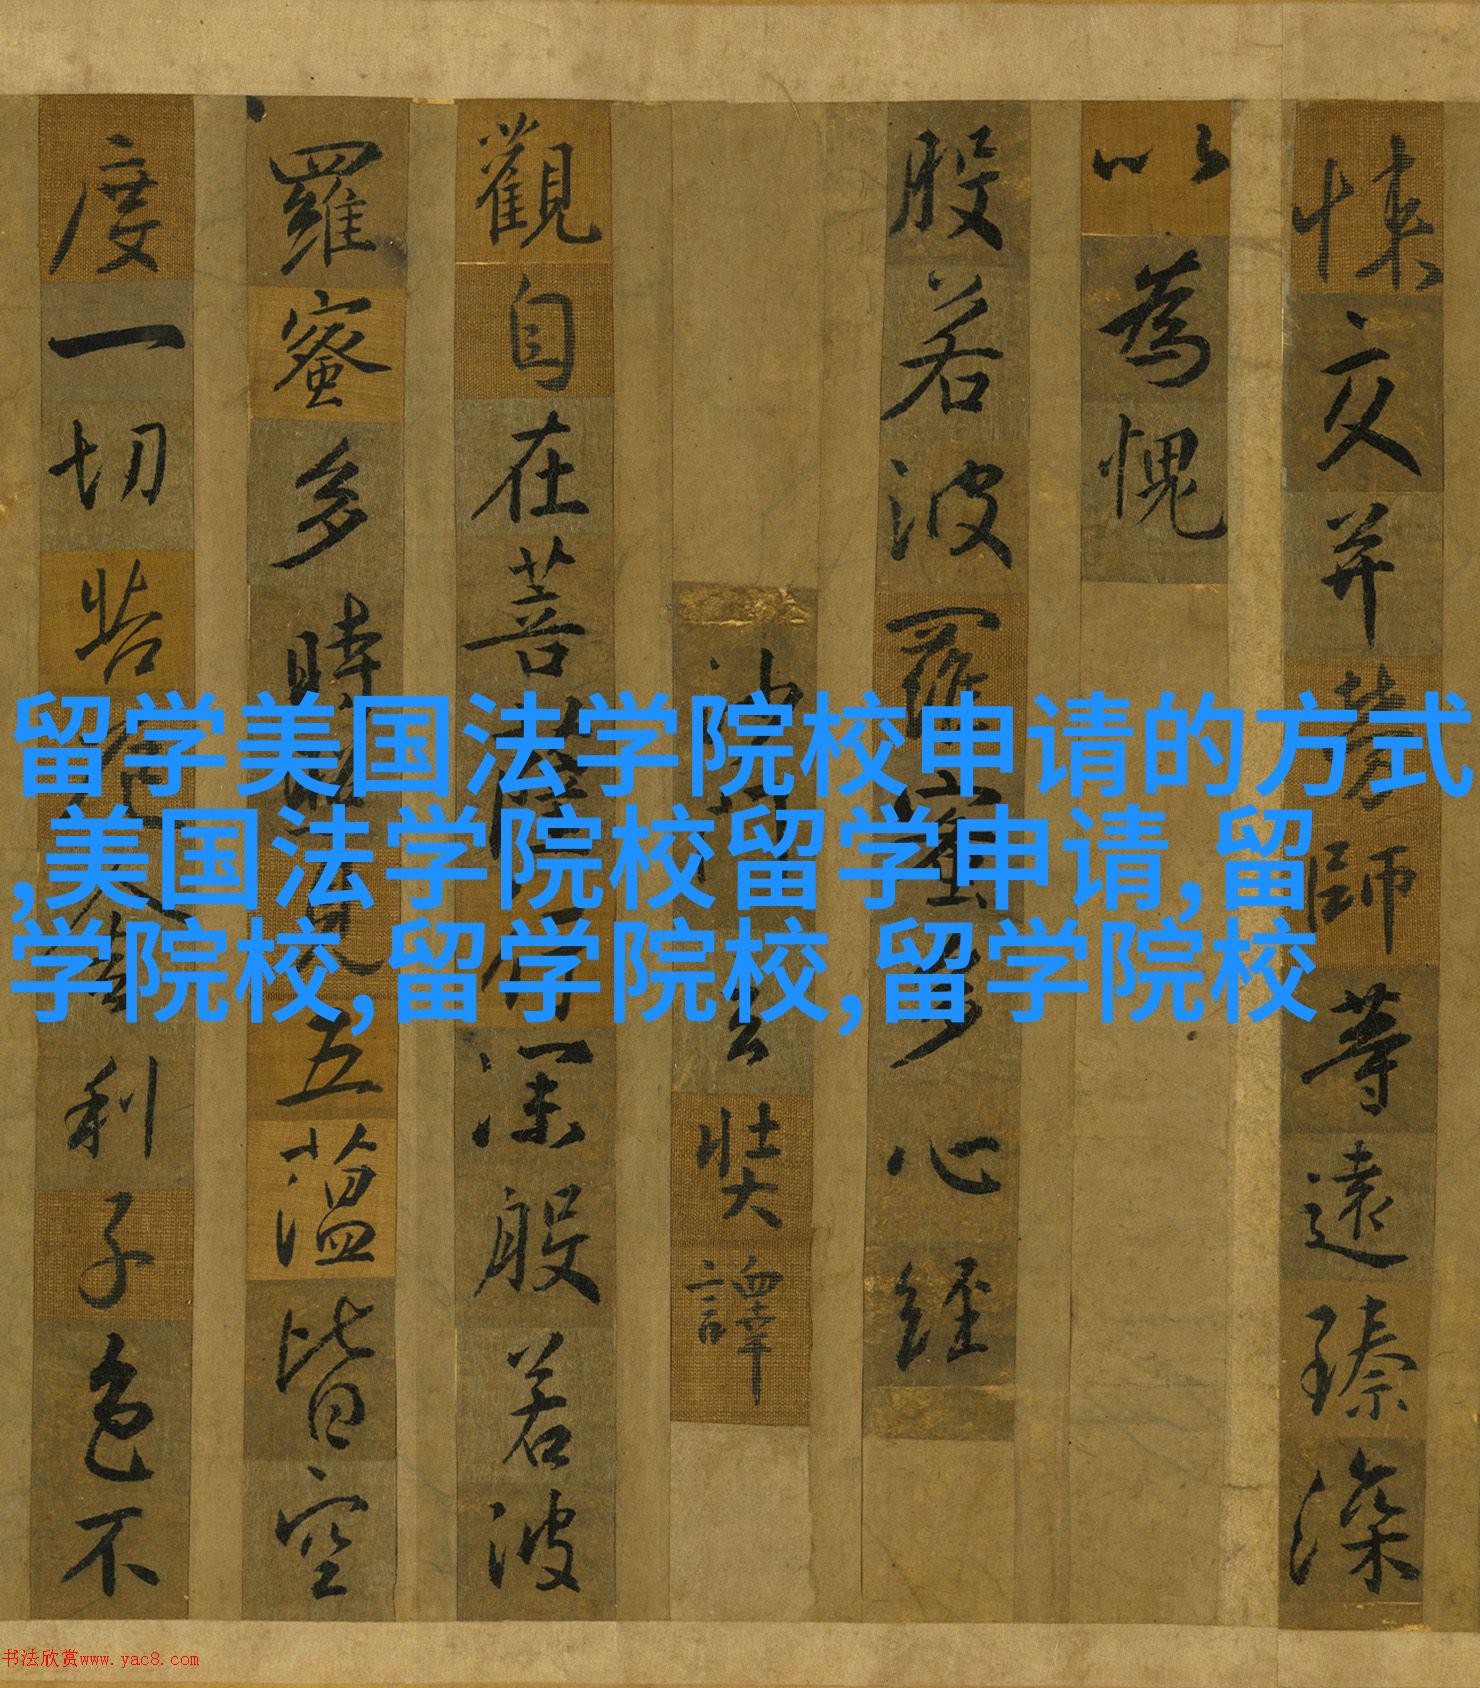 悚交并勞師等遠臻深
以為愧
般若波羅蜜多心經
沙門玄奘譯
觀自在菩薩行深般若波
羅蜜多時照見五蕰皆空
度一切苦厄舍利子色不
留学美国法学院校申请的方式
,美国法学院校留学申请,留
学院校,留学院校,留学院校
书法欣赏www.yac8.com